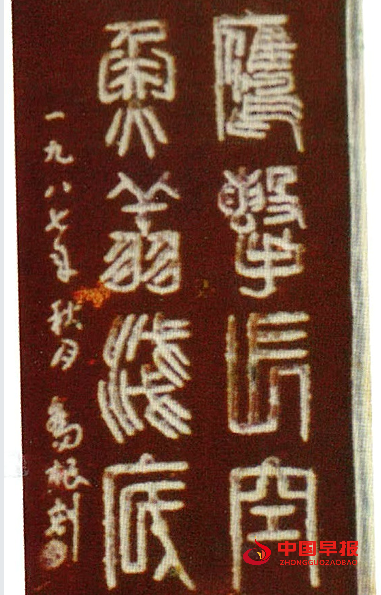 鷹擊長空
魚翔淺底
一九八七年秋月 根刻
中国早报
ZHONGGUOZAOBAO